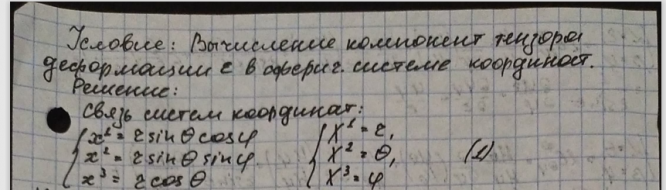 Условие: Вычисление компонент тензора
деформации ε в сферич. системе координат.
Решение:
Связь систем координат:
{ x¹ = r sin θ cos φ { X¹ = r,
x² = r sin θ sin φ X² = θ, (1)
x³ = r cos θ X³ = φ